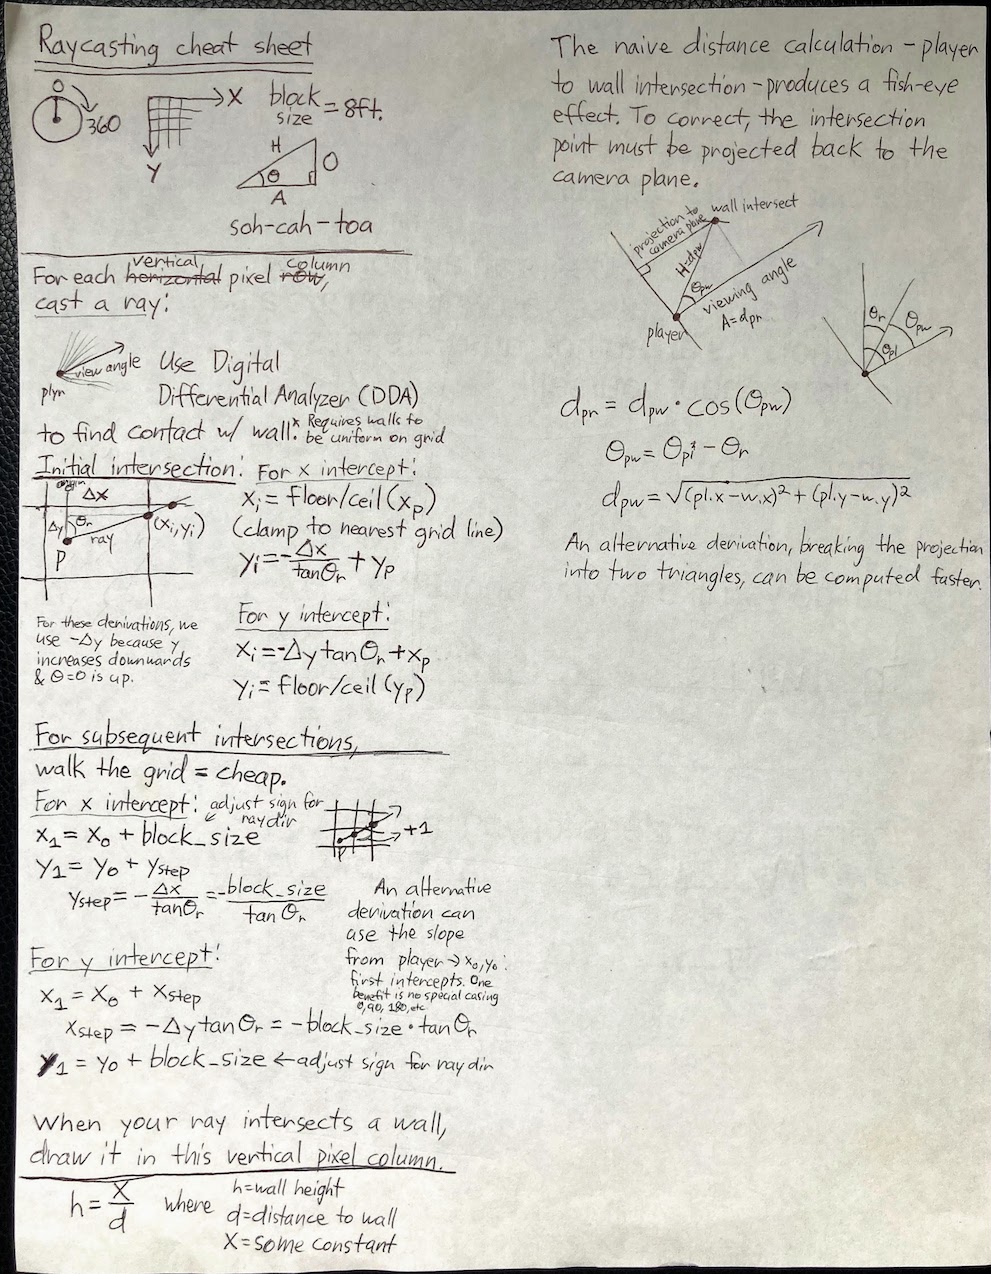 Raycasting cheat sheet
0
360
X
Y
block size = 8ft.
H
O
θ
A
soh-cah-toa
vertical column
For each horizontal pixel row,
cast a ray:
view angle
plyr
Use Digital
Differential Analyzer (DDA)
to find contact w/ wall.* * Requires walls to
be uniform on grid
Initial intersection: For x intercept:
Δx
Δy
θr
ray
P
(xi,yi)
xi = floor/ceil(xp)
(clamp to nearest grid line)
yi = -Δx/tanθr + yp
For y intercept:
xi = -Δy tanθr + xp
yi = floor/ceil(yp)
For these derivations, we
use -Δy because y
increases downwards
& θ=0 is up.
For subsequent intersections,
walk the grid = cheap.
For x intercept: adjust sign for
ray dir
x1 = x0 + block_size
+1
P
y1 = y0 + ystep
ystep = -Δx/tanθr = -block_size/tanθr
An alternative
derivation can
use the slope
from player → x0,y0:
first intercepts. One
benefit is no special casing
0,90,180,etc
For y intercept:
x1 = x0 + xstep
xstep = -Δy tanθr = -block_size · tanθr
y1 = y0 + block_size ← adjust sign for ray dir
When your ray intersects a wall,
draw it in this vertical pixel column.
h = X/d where
h=wall height
d=distance to wall
X=some constant
The naive distance calculation - player
to wall intersection - produces a fish-eye
effect. To correct, the intersection
point must be projected back to the
camera plane.
wall intersect
projection to
camera plane
H=dpw
θpw
viewing angle
A=dpr
player
θr
θpw
θpl
dpr = dpw · cos(θpw)
θpw = θpl - θr
dpw = √(pl.x-w.x)² + (pl.y-w.y)²
An alternative derivation, breaking the projection
into two triangles, can be computed faster.